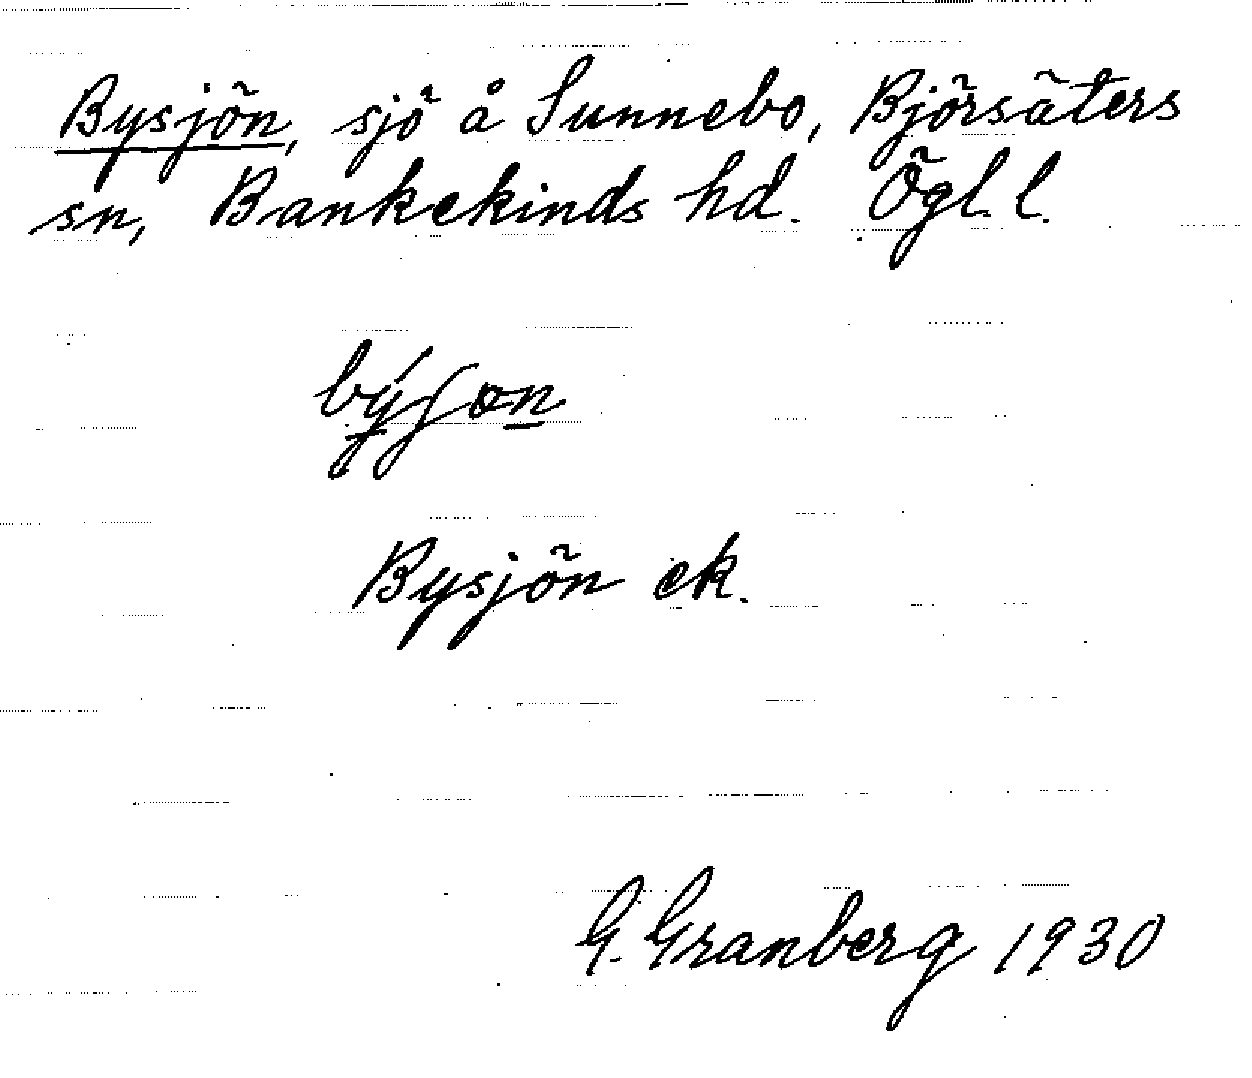 Bysjön, sjö å Sunnebo, Björsäters
sn, Bankekinds hd. Ögl. l.
Bysjön ek.
G. Granberg 1930